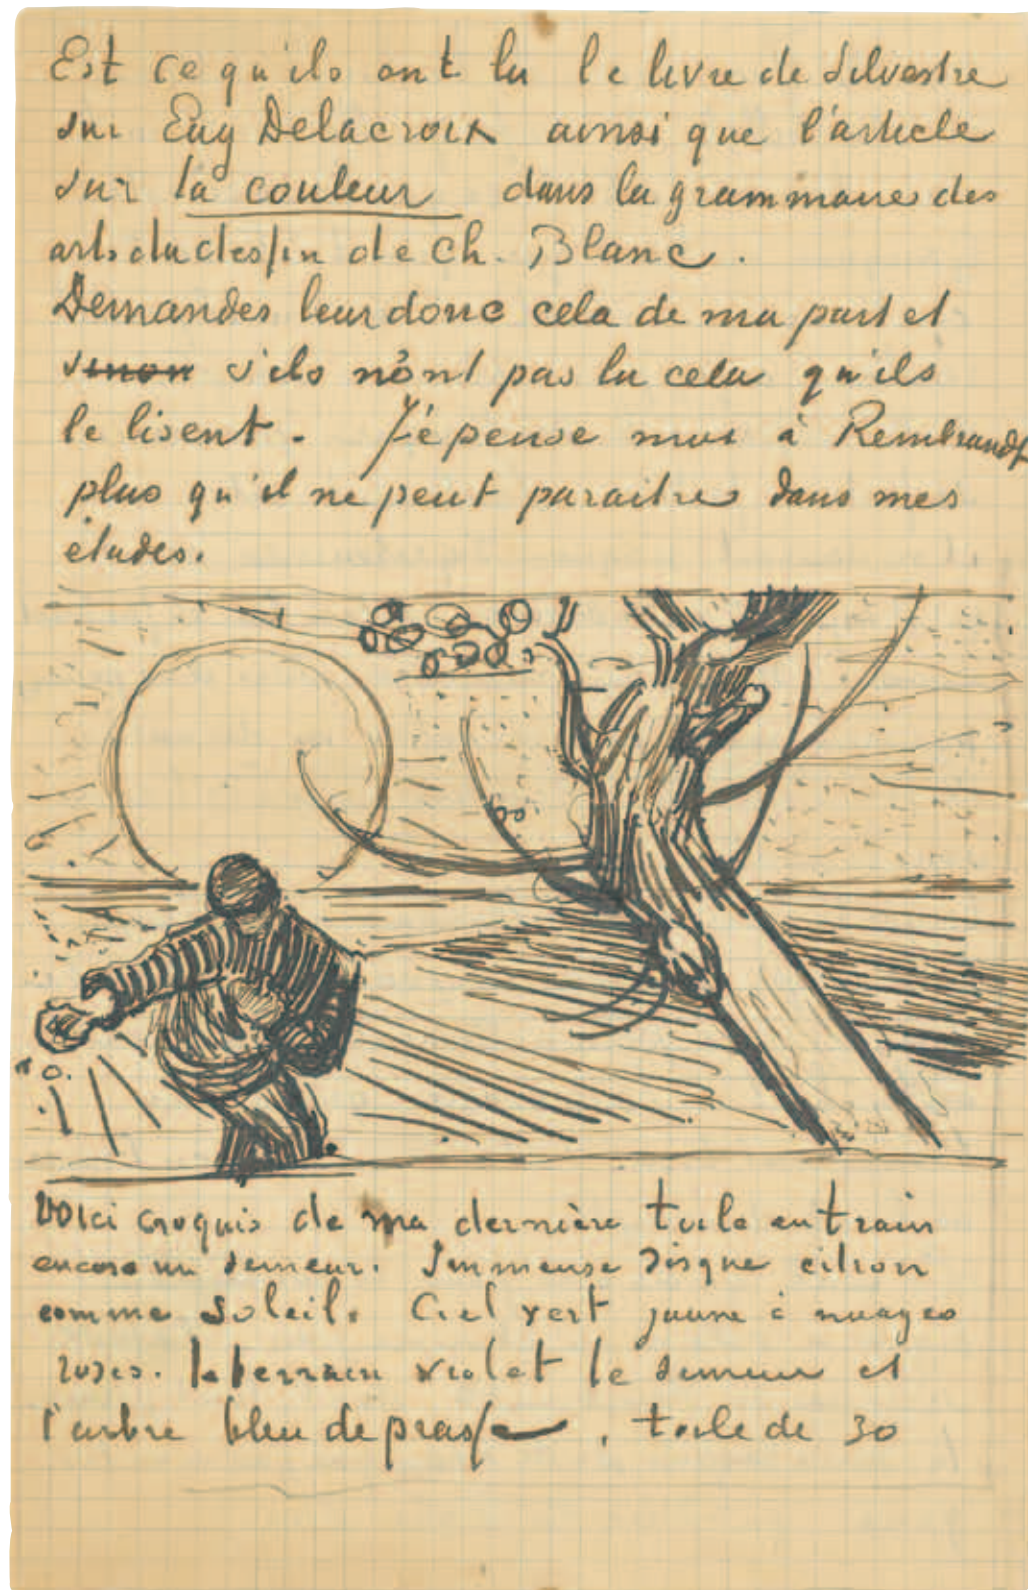 Est ce qu'ils ont lu le livre de Silvestre
sur Eug Delacroix ainsi que l'article
sur la couleur dans la grammaire des
arts du dessin de Ch. Blanc.
Demandes leur donc cela de ma part et
sinon s'ils n'ont pas lu cela qu'ils
le lisent. J'e pense moi à Rembrandt
plus qu'il ne peut paraitre dans mes
études.
Voici croquis de ma dernière toile en train
encore un semeur. Immense disque citron
comme soleil. Ciel vert jaune à nuages
roses. le terrain violet le semeur et
l'arbre bleu de prusse. toile de 30